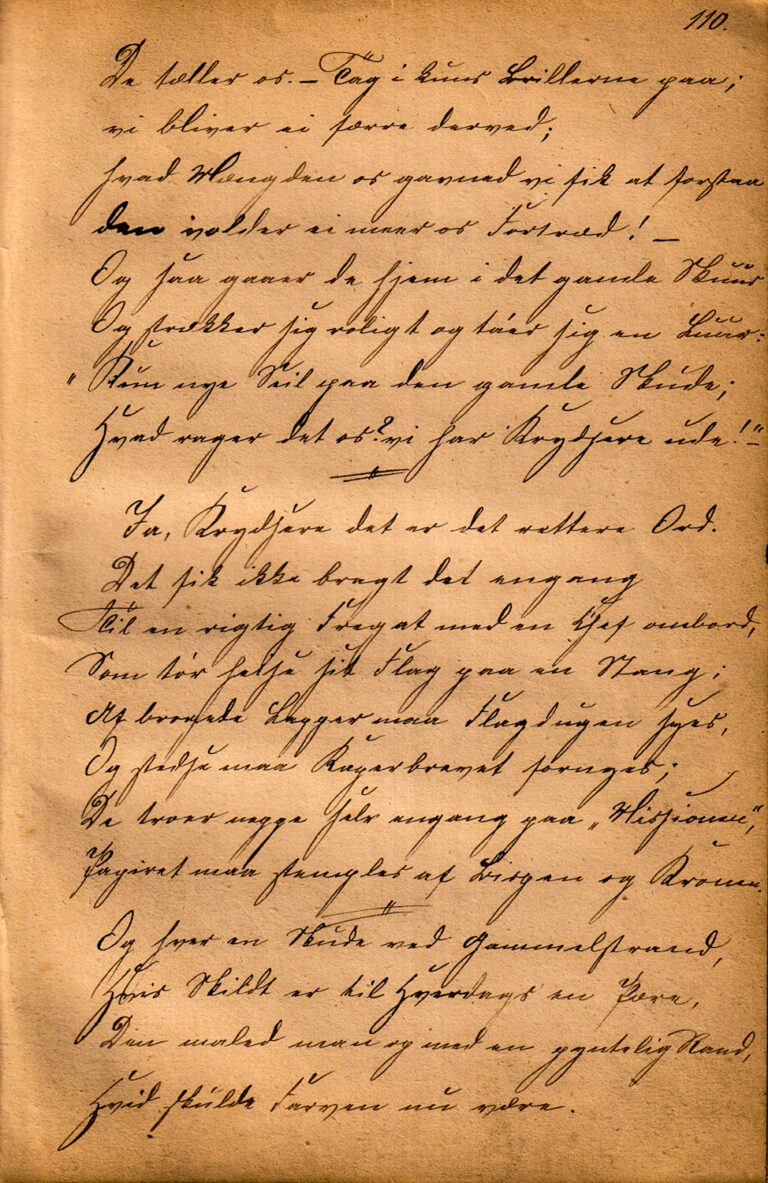 110.
De tæller os. – Tag i kuns Brillerne paa;
vi bliver ei færre derved;
hvad Mængden os gavned vi fik at forstaa
den volder ei meer os Fortræd! –
Og saa gaaer de hjem i det gamle Skuur
Og strækker sig roligt og táer sig en Luur:
"Kun nye Seil paa den gamle Skude;
Hvad rager det os? vi har Krydsere ude!"–
Ja, Krydsere det er det rettere Ord.
Det fik ikke bragt det engang
Til en rigtig Fregat med en Chef ombord,
Som tør heise sit Flag paa en Stang;
Af brogede Lapper maa Flagdugen syes,
Og stedse maa Kaperbrevet fornyes;
De troer neppe selv engang paa „Missionen",
Papiret maa stemples af Bispen og Kronen.
Og hver en Skude ved Gammelstrand,
Hvis Skildt er til Hverdags en Pære,
Den maled man op med en pyntelig Rand,
Hvid skulde Farven nu være.